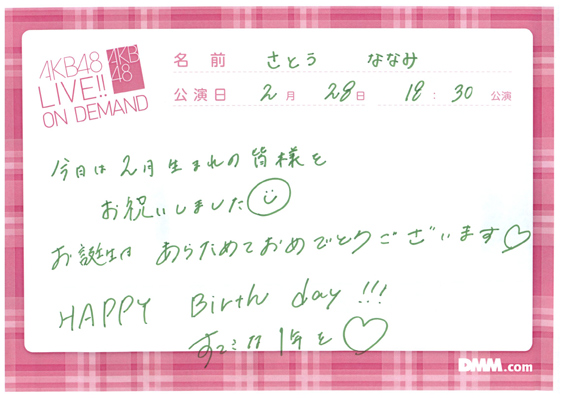 AKB48
LIVE!!
ON DEMAND
AKB
48
名 前 さとう ななみ
公演日 2月 28日 18:30 公演
今日は2月生まれの皆様を
お祝いしました
お誕生日 あらためておめでとうございます♡
HAPPY Birth day !!!
すてきな 1年を ♡
DMM.com